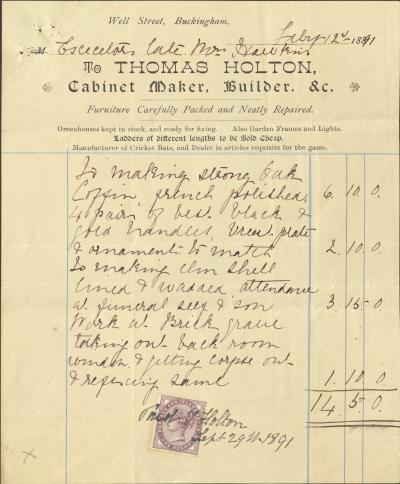 Well Street, Buckingham,
Feby 12th 1891
M Executors Late Mrs Hawkins
To THOMAS HOLTON,
Cabinet Maker, Builder, &c.
Furniture Carefully Packed and Neatly Repaired.
Greenhouses kept in stock, and ready for fixing. Also Garden Frames and Lights.
Ladders of different lengths to be Sold Cheap.
Manufacturer of Cricket Bats, and Dealer in articles requisite for the game.
To making strong Oak
Coffin, french polished, 6. 10. 0.
4 pairs of best black &
gold handles, breast plate
& ornaments to match 2. 10. 0.
To making elm shell
lined & wadded, attendance
at funeral self & son 3. 15. 0
Work at Brick grave
taking out back room
window & getting corpse out
& refixing same 1. 10. 0
14. 5. 0.
Paid T Holton
Sept 29th 1891